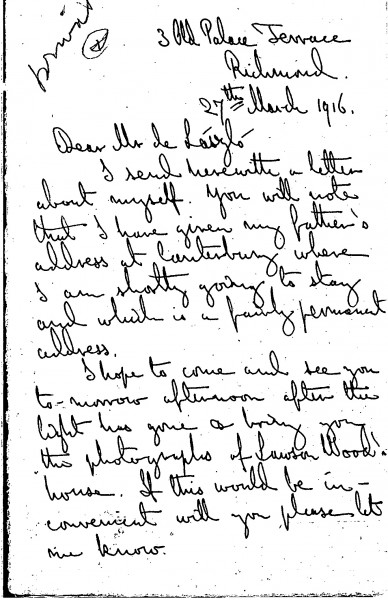 private
3 Old Palace Terrace
Richmond.
27th March 1916.
Dear Mr de László
I send herewith a letter
about myself. You will note
that I have given my father's
address at Canterbury where
I am shortly going to stay
and which is a fairly permanent
address.
I hope to come and see you
to-morrow afternoon after the
light has gone & bring you
the photographs of Lawson Wood's
house. If this would be in-
convenient with you please let
me know.